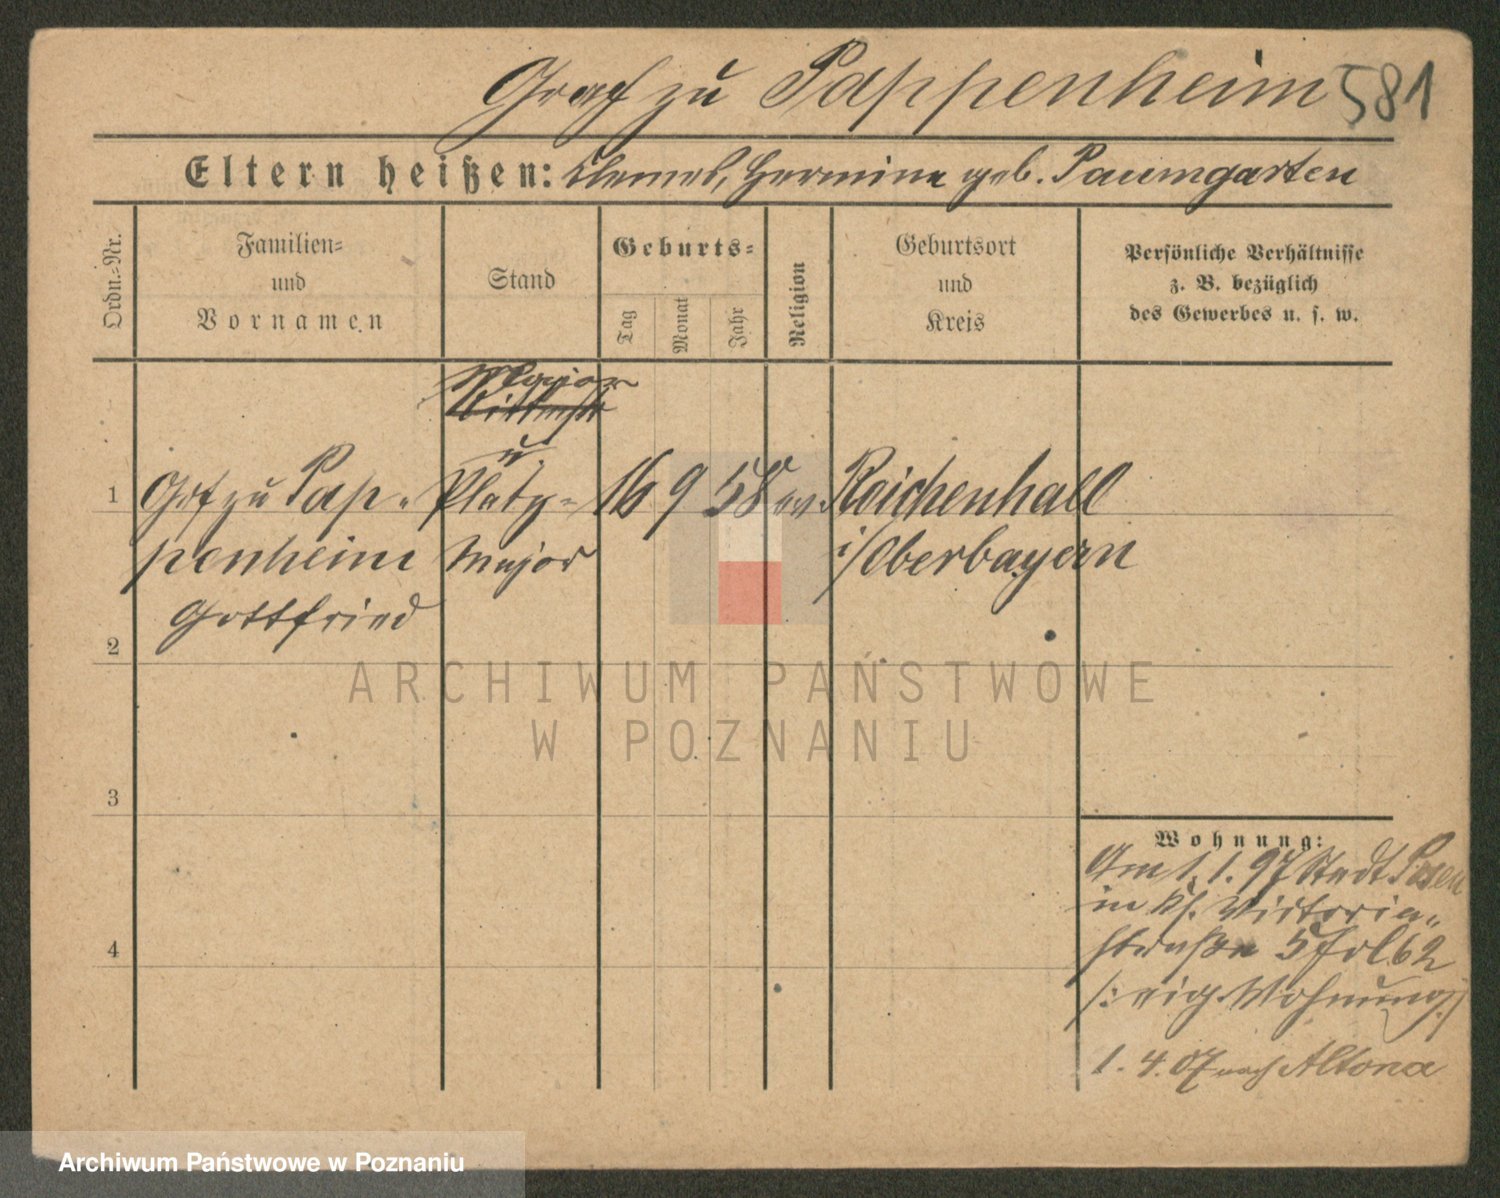 Graf zu Pappenheim 581
Eltern heißen: Clemens, Hermine geb. Paumgarten
Ordn.-Nr.
Familien-
und
Vornamen
Stand
Geburts-
Tag
Monat
Jahr
Religion
Geburtsort
und
Kreis
Persönliche Verhältnisse
z. B. bezüglich
des Gewerbes u. s. w.
Major
Rittmstr
u.
1 Grf zu Pap- Platz- 16 9 58 ev. Reichenhall
penheim Major i/Oberbayern
Gottfried
2
3
4
Wohnung:
Am 1. 1. 97 Stadt Posen
in Victoria-
straße 5
eig. Wohnung
1. 4. 07 nach Altona
ARCHIWUM PAŃSTWOWE
W POZNANIU
Archiwum Państwowe w Poznaniu